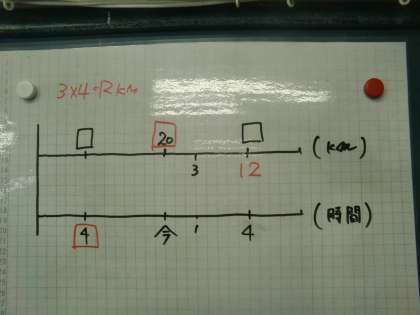 3×4=12km
20
(km)
3 12
(時間)
4 今 1 4